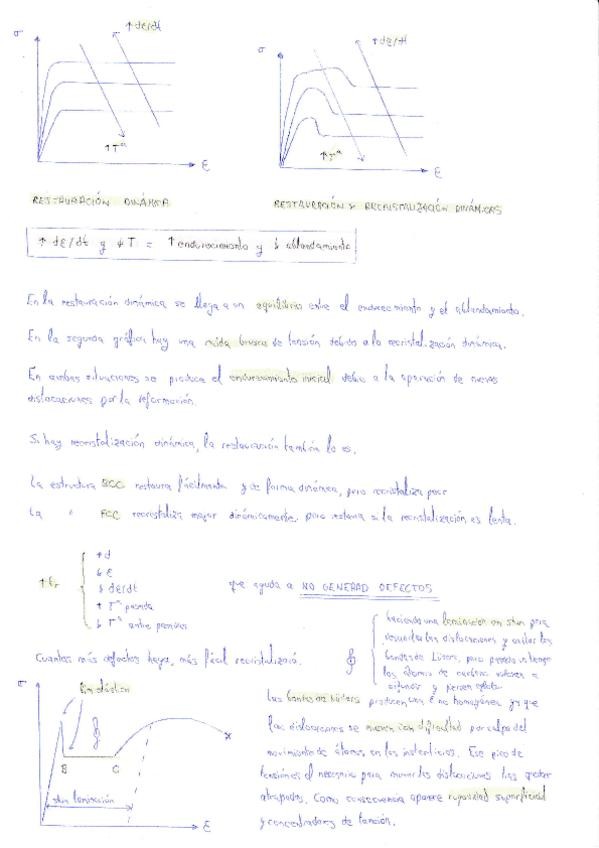 σ
↑ dε/dt
↑Tª
ε
RESTAURACIÓN DINÁMICA
σ
↑ dε/dt
↑Tª
ε
RESTAURACIÓN Y RECRISTALIZACIÓN DINÁMICAS
↑ dε/dt y ↓T = ↑endurecimiento y ↓ ablandamiento
En la restauración dinámica se llega a un equilibrio entre el endurecimiento y el ablandamiento.
En la segunda gráfica hay una caída brusca de tensión debido a la recristalización dinámica.
En ambas situaciones se produce el endurecimiento inicial debido a la aparición de nuevas
dislocaciones por la deformación.
Si hay recristalización dinámica, la restauración también lo es.
La estructura BCC restaura fácilmente y de forma dinámica, pero recristaliza peor
La " FCC recristaliza mejor dinámicamente, pero restaura si la recristalización es lenta.
↑
↑ d
↓ ε
↓ dε/dt
↑ Tª pasada
↓ Tª entre pasadas
que ayuda a NO GENERAR DEFECTOS
Cuantos más defectos haya, más fácil recristalizará.
haciendo una laminación skin para
las dislocaciones y evitar las
bandas de Lüders, pero pasado un tiempo
los átomos de carbono vuelven a
difundir y pierden efecto
σ
B
C
skin laminación
ε
Las bandas de Lüders producen una ε no homogénea ya que
las dislocaciones se mueven con dificultad por culpa del
movimiento de átomos en los intersticios. Ese pico de
tensión es el necesario para mover las dislocaciones tras quedar
atrapadas. Como consecuencia aparece rugosidad superficial
y concentradores de tensión.